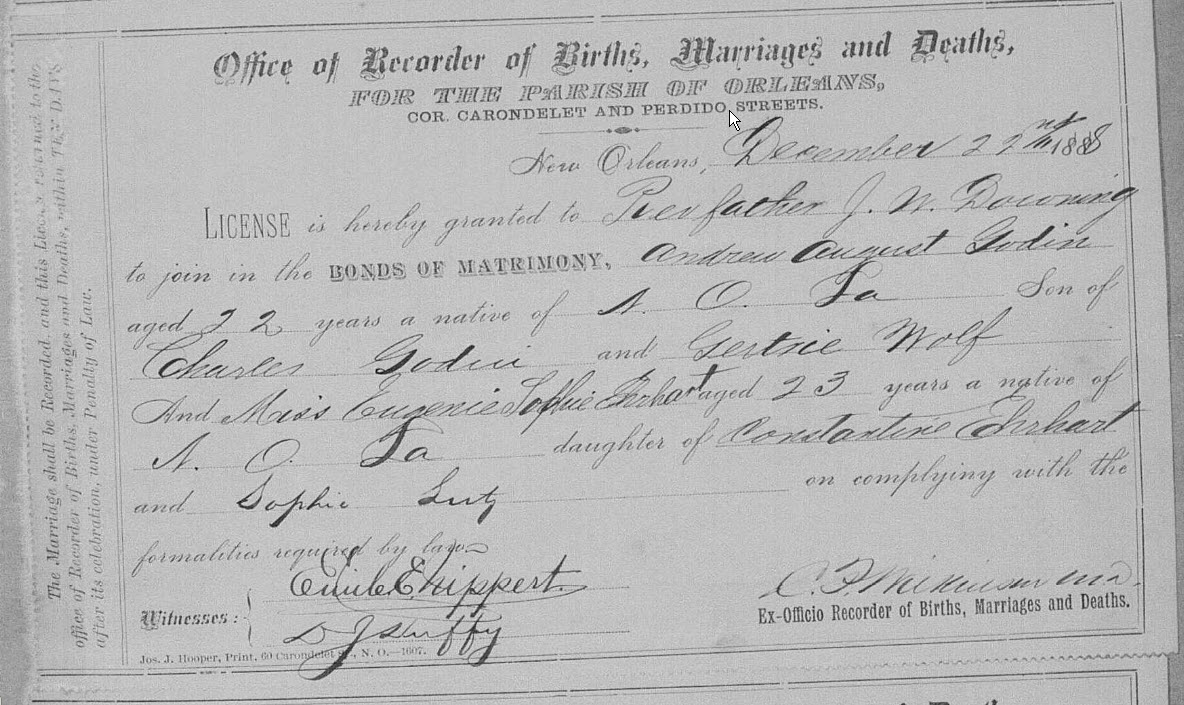 Office of Recorder of Births, Marriages and Deaths,
FOR THE PARISH OF ORLEANS,
COR. CARONDELET AND PERDIDO STREETS.
New Orleans, December 22nd 1888
LICENSE is hereby granted to Rev father J. W. Downing
to join in the BONDS OF MATRIMONY, Andrew August Godin
aged 22 years a native of N. O. La Son of
Charles Godin and Gertrie Wolf
And Miss Eugenie Sophie Ehrhart aged 23 years a native of
N. O. La daughter of Constantine Ehrhart
and Sophie Lutz on complying with the
formalities required by law
Witnesses:
D J Duffy
Ex-Officio Recorder of Births, Marriages and Deaths.
Jos. J. Hooper, Print, 60 Carondelet St., N. O.—1607.
The Marriage shall be Recorded, and this License returned to the
office of Recorder of Births, Marriages and Deaths, within TEN DAYS
after its celebration, under Penalty of Law.